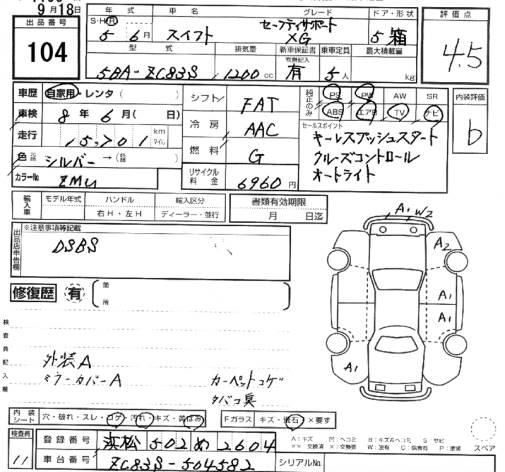 9月18日
出品番号
104
年式 車名 グレード ドア・形状
S・H・R 5年 6月 スイフト セーフティサポート XG 5 箱
型式 排気量 新車保証書 乗車定員 最大積載量
5BA-ZC83S 1200 cc 有 5人 kg
評価点
4.5
車歴 自家用・レンタ( )
車検 8年6月( 日)
走行 15,701 km マイル
色 シルバー→(
カラーNo ZMU
シフト FAT
冷房 AAC
燃料 G
リサイクル料金 6960円
純正のみ
PS PW AW SR
ABS エアB TV ナビ
セールスポイント
キーレスプッシュスタート
クルーズコントロール
オートライト
内装評価
b
輸入車 モデル年式 ハンドル 輸入区分
年 右H・左H ディーラー・並行
書類有効期限
月 日迄
出品店申告欄
※注意事項等記載
DSBS
修復歴 有 箇所
検査員記入欄
外装A
ミラーカバーA
カーペットコゲ
タバコ臭
A1 W2
A2
A1
A1
A1
内装シート 穴・破れ・スレ・コゲ・汚れ・キズ・黄ばみ
Fガラス キズ・飛石・×要す
検査員
11
登録番号 浜松 502 め 2604
車台番号 ZC83S-504582
シリアルNo.
A:キズ U:ヘコミ B:キズ&ヘコミ S:サビ
××:交換済 X:交換要 W:波有 C:腐食有 P:塗装
スペア